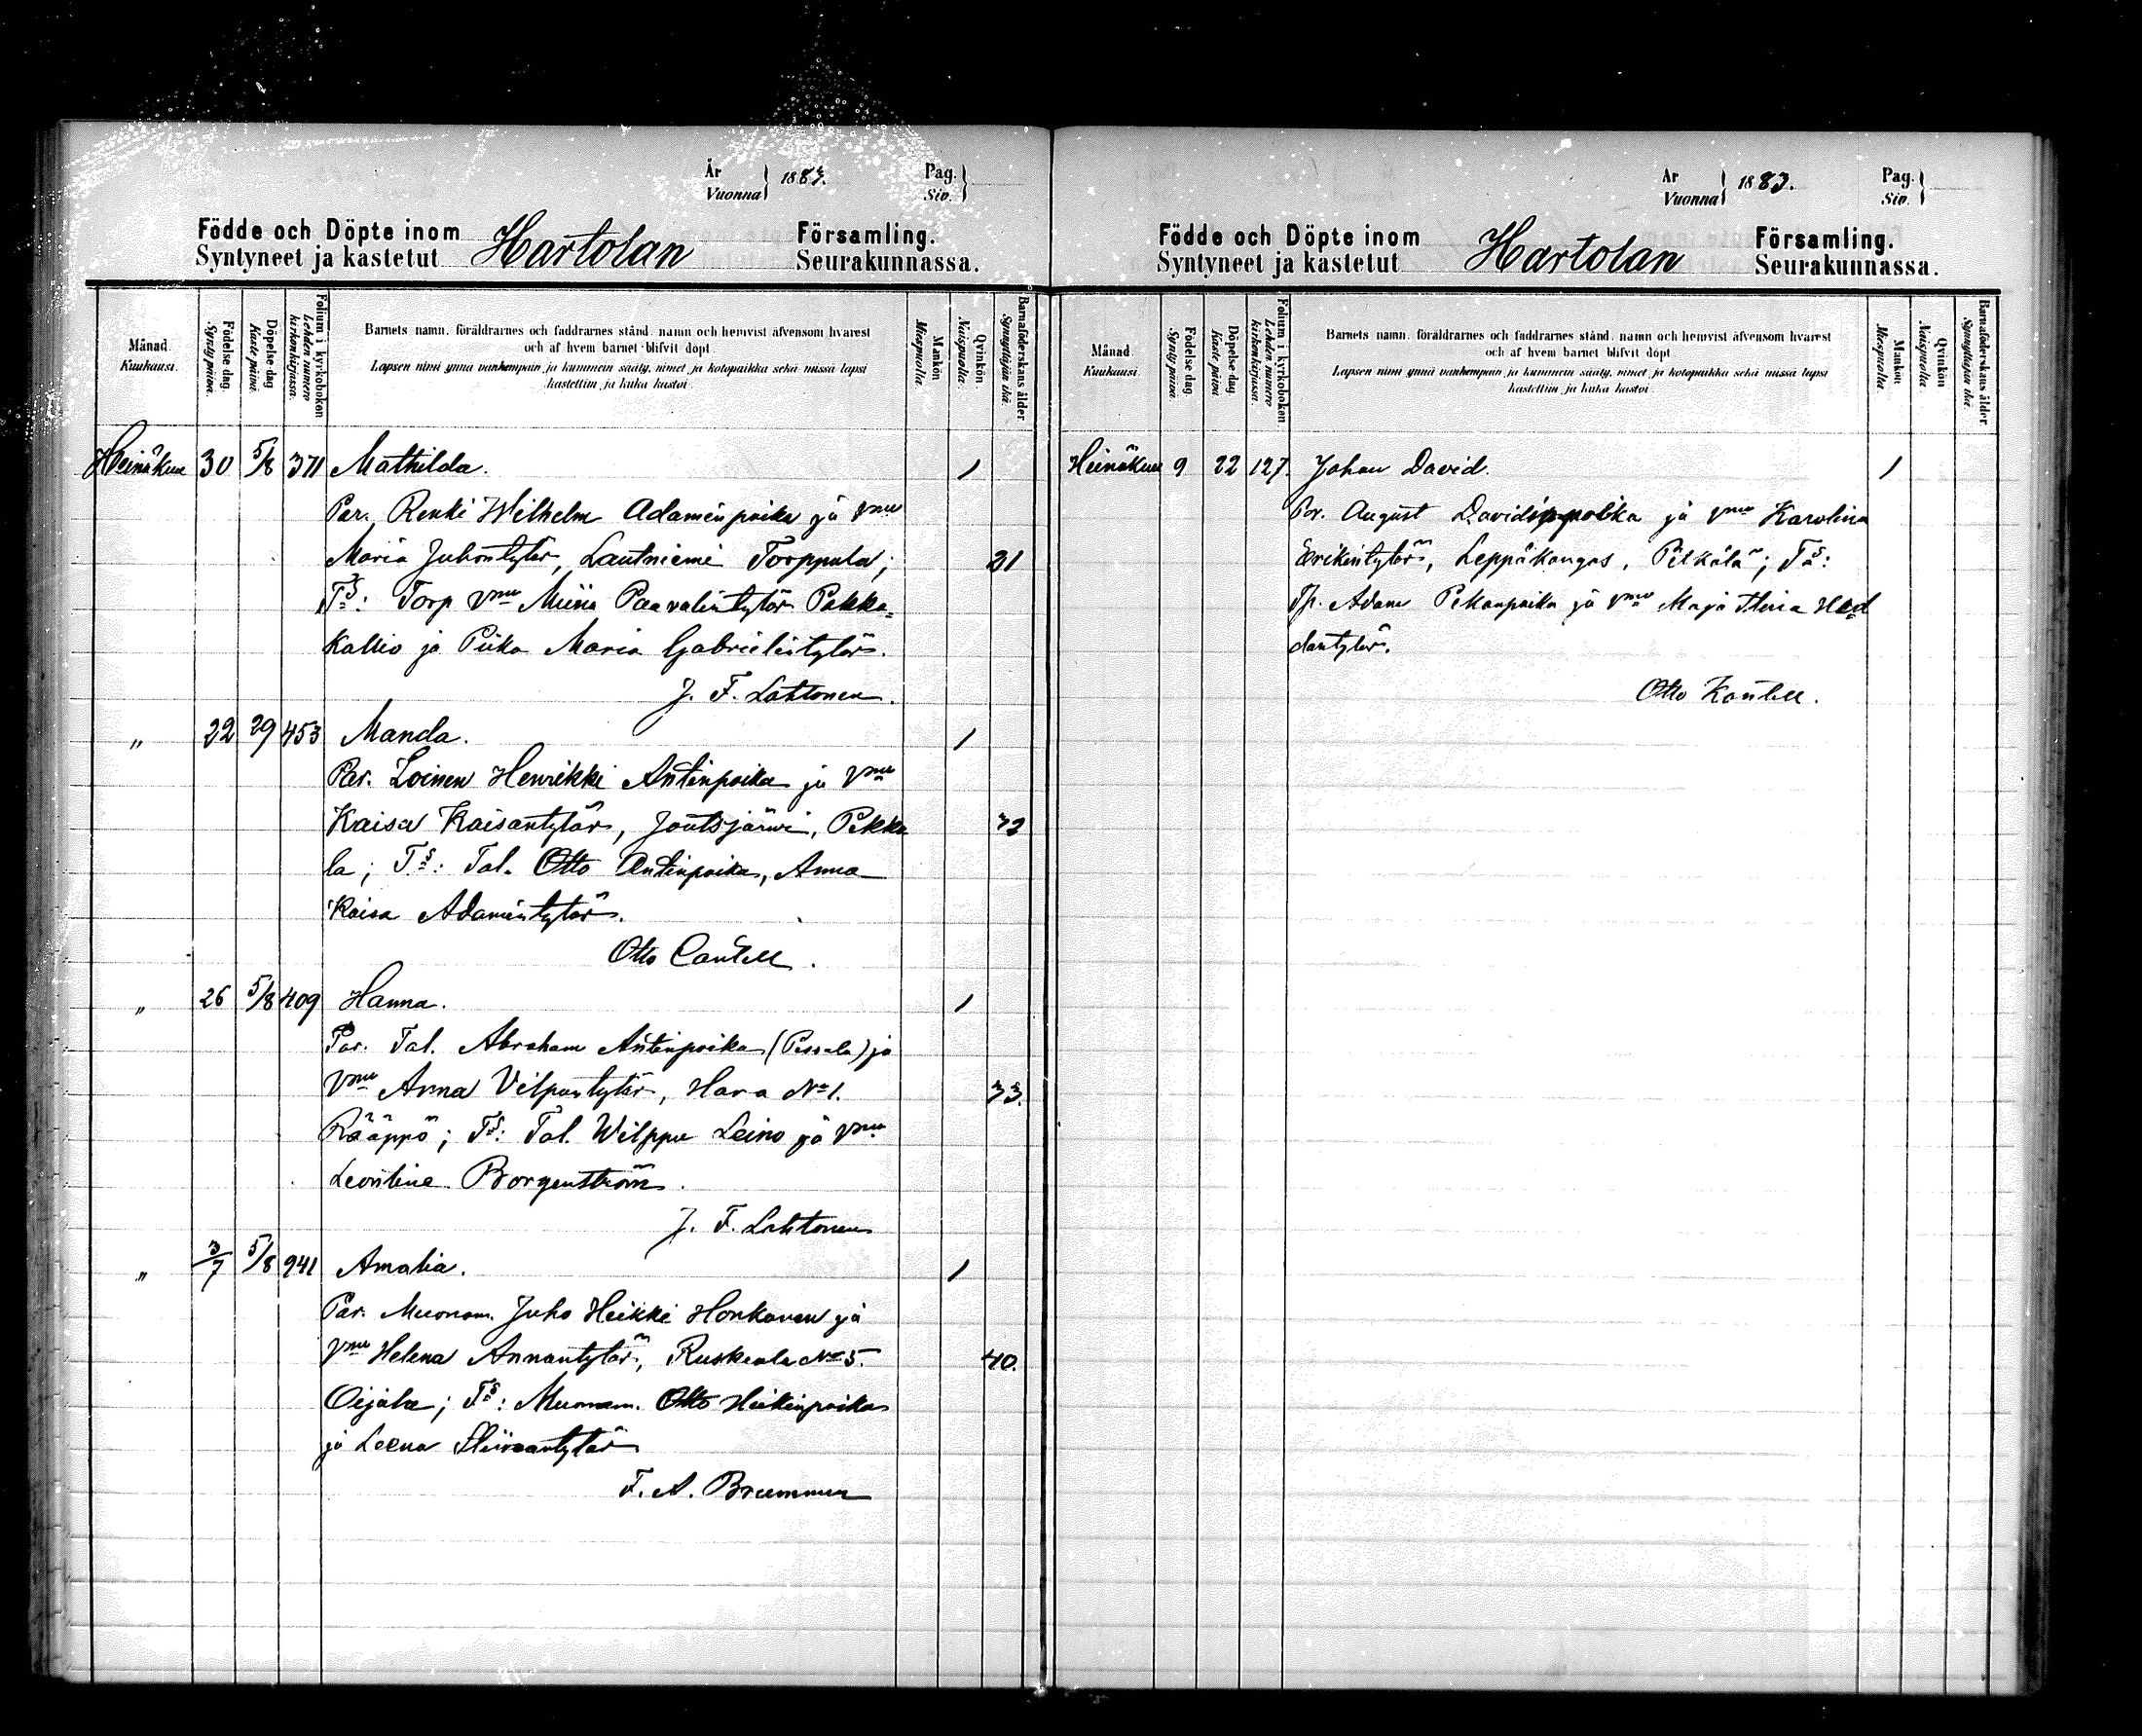 År
Vuonna } 1883.
Pag.
Siv. }
Födde och Döpte inom Hartolan Församling.
Syntyneet ja kastetut Seurakunnassa.
Månad.
Kuukausi.
Födelse dag.
Synty päivä.
Döpelse dag.
Kaste päivä.
Folium i kyrkoboken
Lehden numero
kirkonkirjassa.
Barnets namn, föräldrarnes och faddrarnes stånd, namn och hemvist äfvensom hvarest
och af hvem barnet blifvit döpt.
Lapsen nimi ynnä vanhempain ja kummein sääty, nimet ja kotopaikka sekä missä lapsi
kastettiin ja kuka kastoi.
Mankön
Miespuolia.
Qvinkön
Naispuolia.
Barnaföderskans ålder.
Synnyttäjän ikä.
Heinäkuu 30 5/8 371 Mathilda. 1
Par. Renki Wilhelm Adaminpoika ja Vmu
Maria Juhontytär, Lautniemi Torppula; 31
Ts: Torp Vmu Miina Paavalintytär Pakka-
kallio ja Piika Maria Gabrielintytär.
J. F. Lahtonen.
" 22 29 453 Manda. 1
Par. Loinen Henrikki Antinpoika ja Vmu
Kaisa Kaisantytär, Joutsjärwi, Pekka 32
la; Ts: Tal. Otto Antinpoika, Anna
Kaisa Adamintytär.
Otto Cantell.
" 26 5/8 409 Hanna. 1
Par. Tal. Abraham Antinpoika (Pessala) ja
Vmu Anna Vilpuntytär, Hara No 1. 33.
Rääppö; Ts: Tal. Wilppu Leino ja Vmu
Leontine Borgenström.
J. F. Lahtonen
" 3/7 5/8 941 Amalia. 1
Par. Muonam. Juho Heikki Honkanen ja
Vmu Helena Annantytär, Ruskeala No 5. 40.
Oijala; Ts: Muonam. Otto Heikinpoika
ja Leena
F. A. Brummer
År
Vuonna } 1883.
Pag.
Siv. }
Födde och Döpte inom Hartolan Församling.
Syntyneet ja kastetut Seurakunnassa.
Månad.
Kuukausi.
Födelse dag.
Synty päivä.
Döpelse dag.
Kaste päivä
Folium i kyrkoboken
Lehden numero
kirkonkirjassa.
Barnets namn, föräldrarnes och faddrarnes stånd, namn och hemvist äfvensom hvarest
och af hvem barnet blifvit döpt.
Lapsen nimi ynnä vanhempain ja kummein sääty, nimet ja kotopaikka sekä missä lapsi
kastettiin ja kuka kastoi.
Mankön
Miespuolia.
Qvinkön
Naispuolia.
Barnaföderskans ålder.
Synnyttäjän ikä.
Heinäkuu 9 22 127. Johan David. 1
Par. August Davidinpoika ja Vmu Karolina
Erikintytär, Leppäkangas, Pilkälä; Ts:
Tp. Adam Pekanpoika ja Vmu Maja Stina Hed
dantytär.
Otto Kantell.